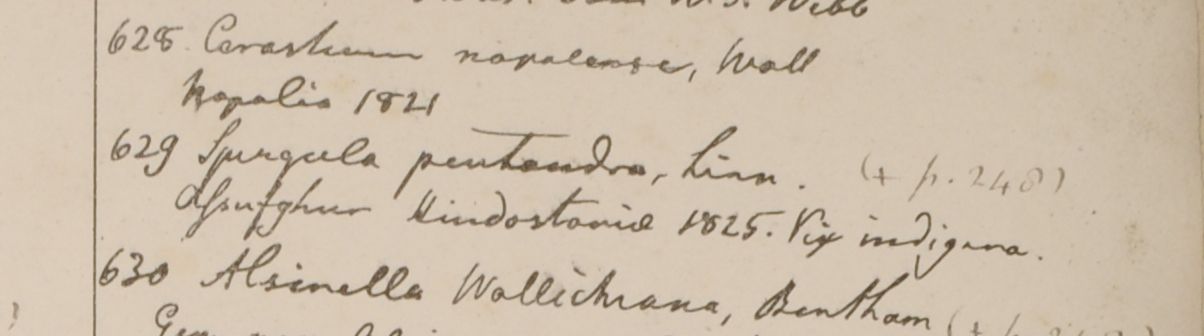 W. S. Webb
628 Cerastium napalense, Wall
Napalia 1821
629 Spergula pentandra, Linn. (+ p. 248)
Hindostaniæ 1825. Vix indigena.
630 Alsinella Wallichiana, Bentham